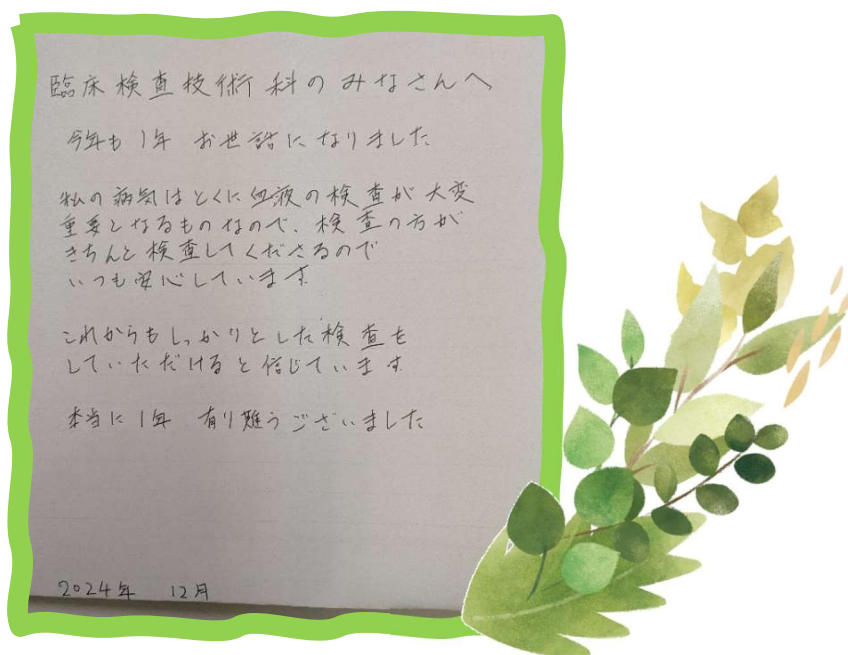 臨床検査技術科のみなさんへ
今年も1年 お世話になりました
私の病気はとくに血液の検査が大変
重要となるものなので、検査の方が
きちんと検査してくださるので
いつも安心しています
これからもしっかりとした検査を
していただけると信じています
本当に1年 有り難うございました
2024年 12月